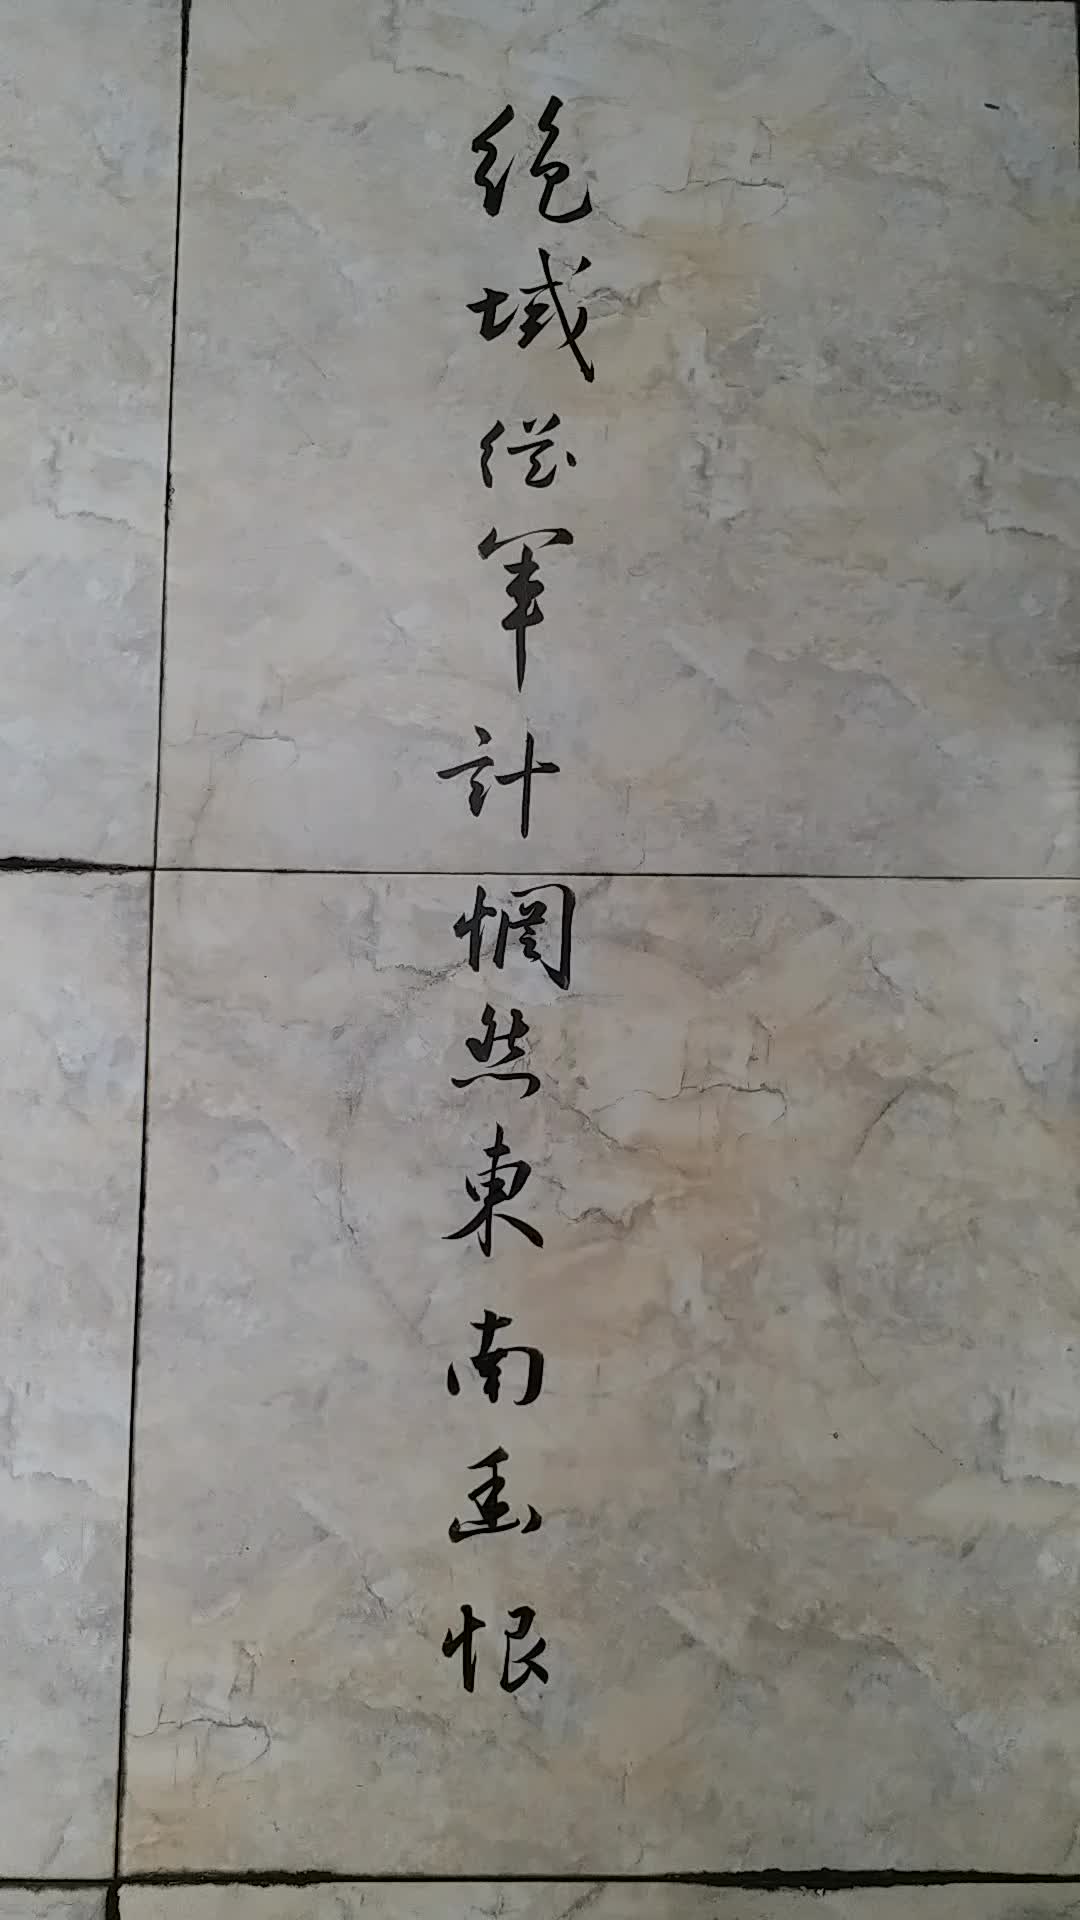 絶域從軍計惘然東南幽恨